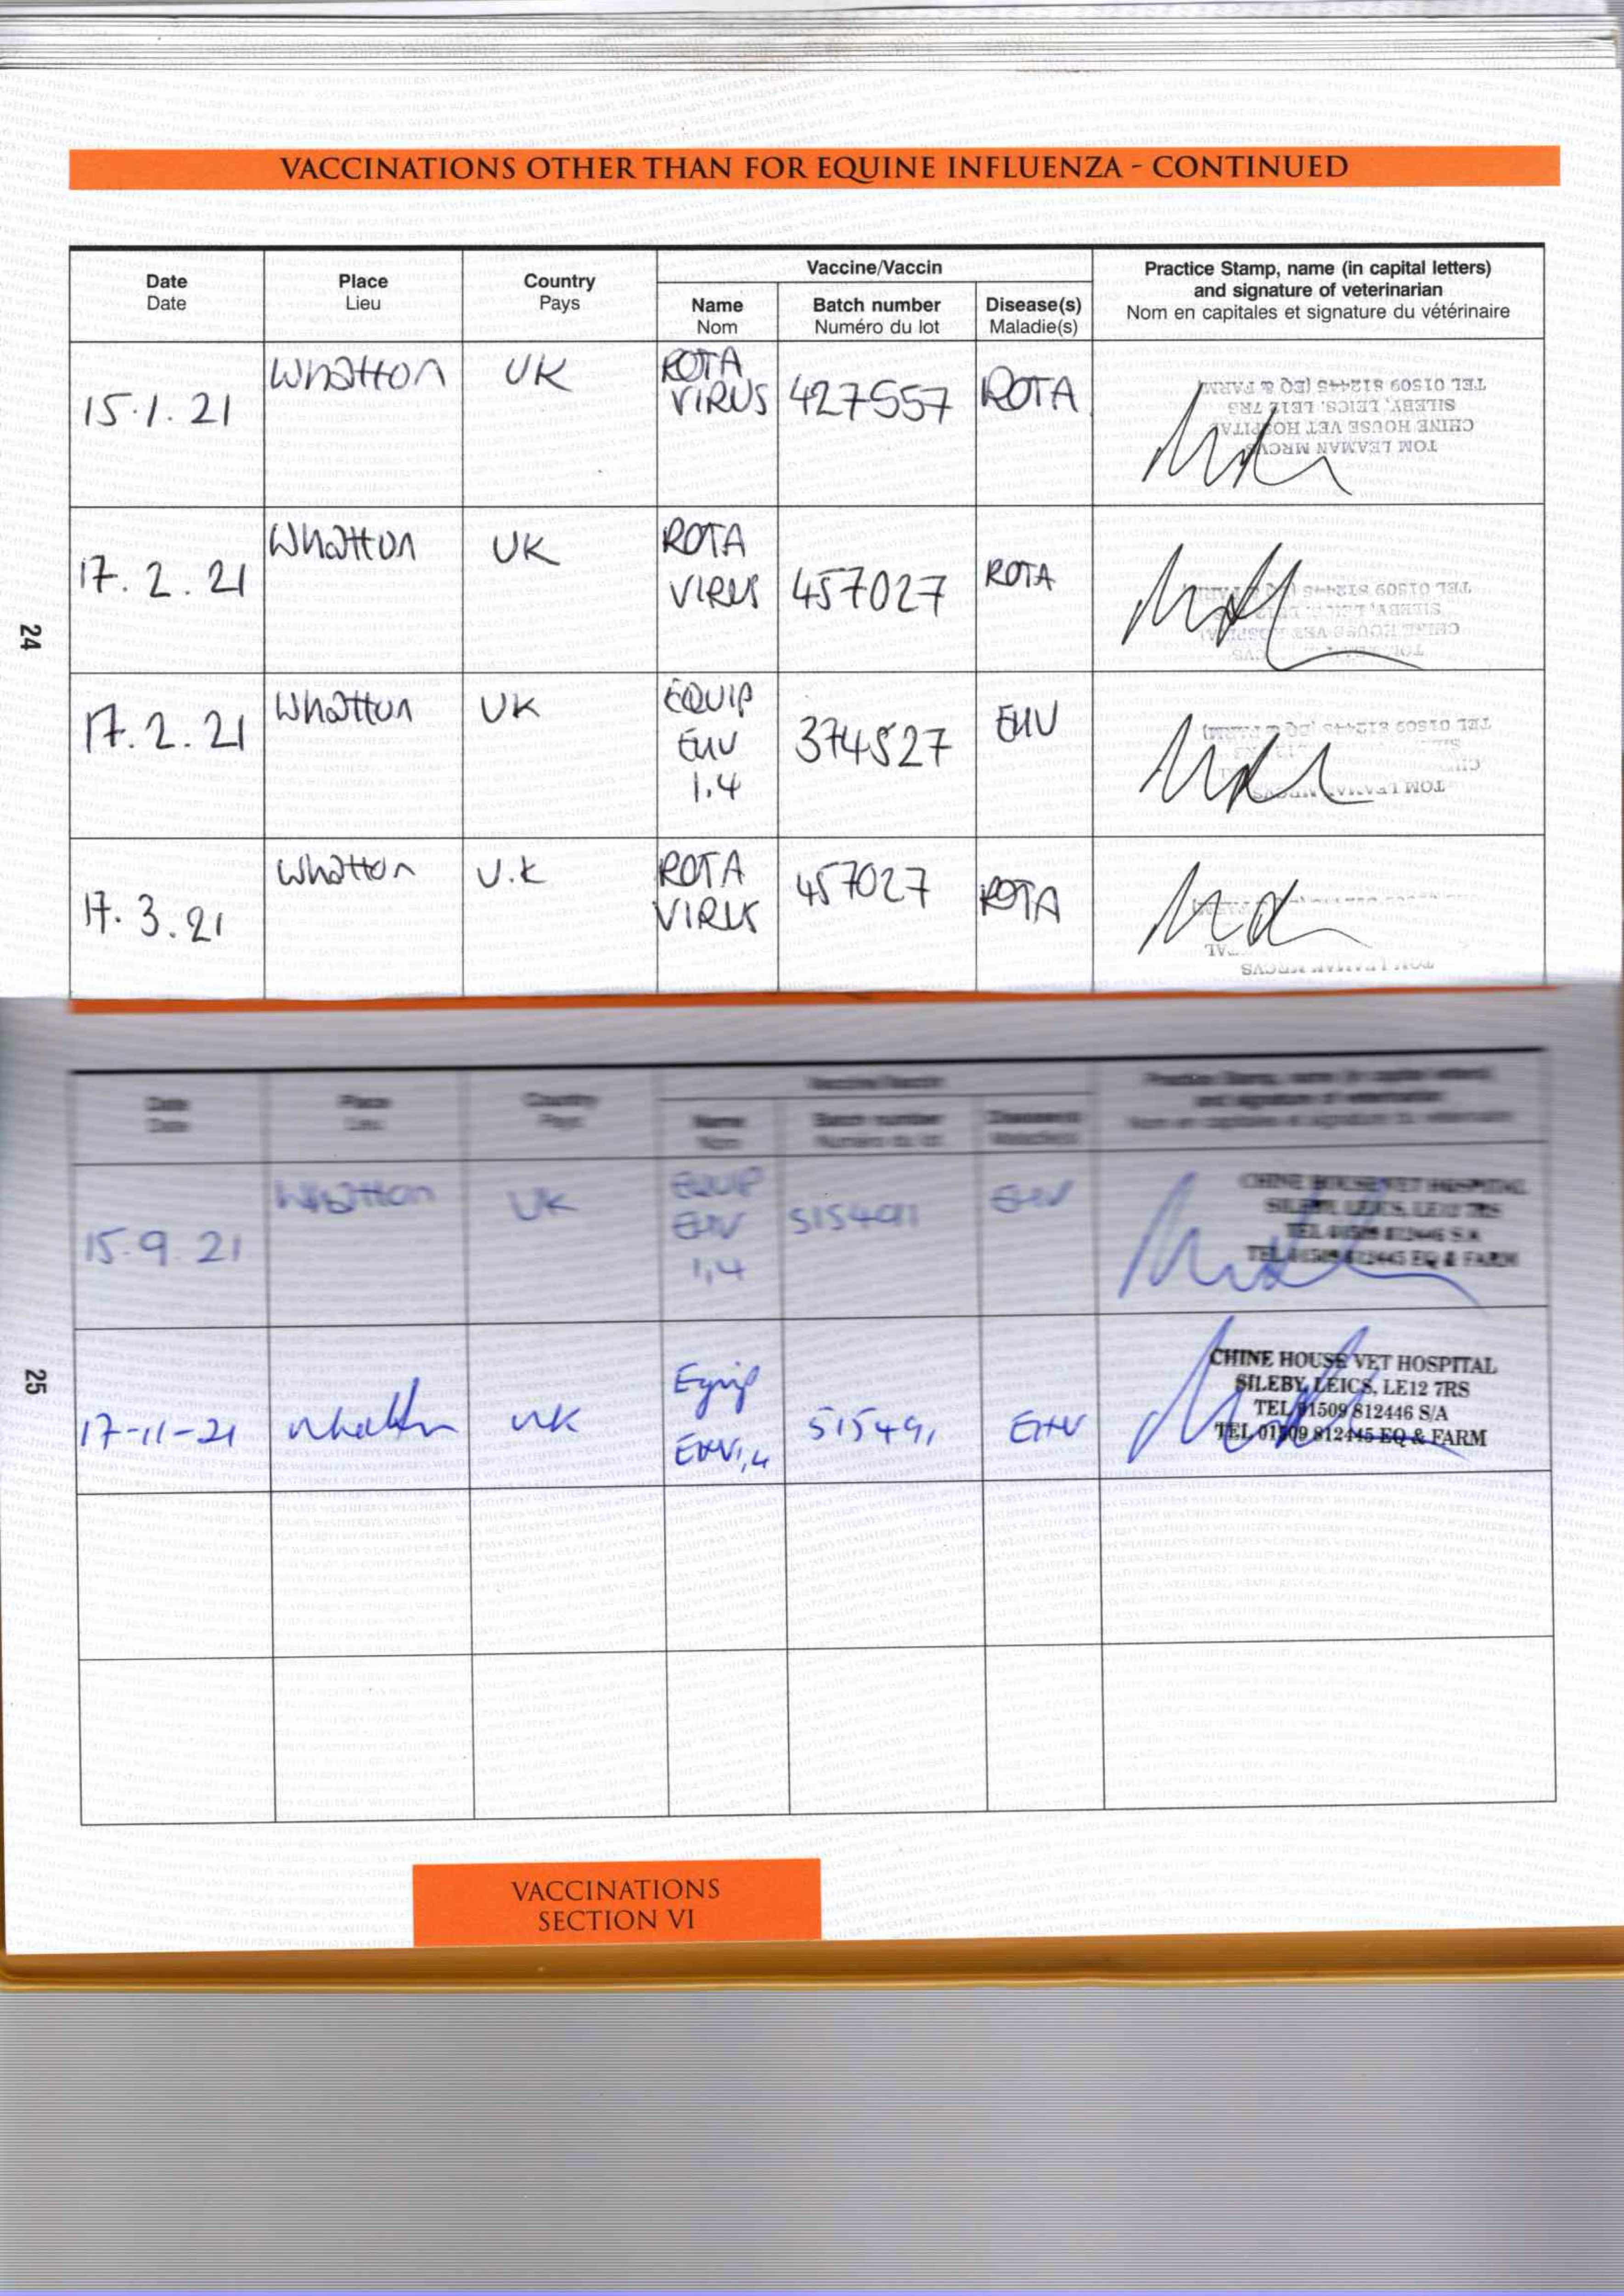 VACCINATIONS OTHER THAN FOR EQUINE INFLUENZA - CONTINUED
Date
Date
Place
Lieu
Country
Pays
Vaccine/Vaccin
Name
Nom
Batch number
Numéro du lot
Disease(s)
Maladie(s)
Practice Stamp, name (in capital letters)
and signature of veterinarian
Nom en capitales et signature du vétérinaire
15.1.21
Whatton
UK
ROTA
VIRUS
427557
ROTA
TEL 01509 812445 (EQ & FARM)
SILEBY, LEICS, LE12 7RS
CHINE HOUSE VET HOSPITAL
TOM LEAMAN MRCVS
17.2.21
Whatton
UK
ROTA
VIRUS
457027
ROTA
TEL 01509 812445
17.2.21
Whatton
UK
EQUIP
EHV
1.4
374527
EHV
TEL 01509 812445 (EQ & FARM)
TOM LEAMAN MRCVS
17.3.21
Whatton
U.K
ROTA
VIRUS
457027
ROTA
TOM LEAMAN MRCVS
24
Date
Date
Place
Lieu
Country
Pays
Vaccine/Vaccin
Name
Nom
Batch number
Numéro du lot
Disease(s)
Maladie(s)
Practice Stamp, name (in capital letters)
and signature of veterinarian
Nom en capitales et signature du vétérinaire
15.9.21
Whatton
UK
EQUIP
EHV
1,4
515491
EHV
CHINE HOUSE VET HOSPITAL
SILEBY, LEICS, LE12 7RS
TEL 01509 812446 S/A
TEL 01509 812445 EQ & FARM
17-11-21
Whatton
UK
Equip
EHV1,4
515491
EHV
CHINE HOUSE VET HOSPITAL
SILEBY, LEICS, LE12 7RS
TEL 01509 812446 S/A
TEL 01509 812445 EQ & FARM
25
VACCINATIONS
SECTION VI